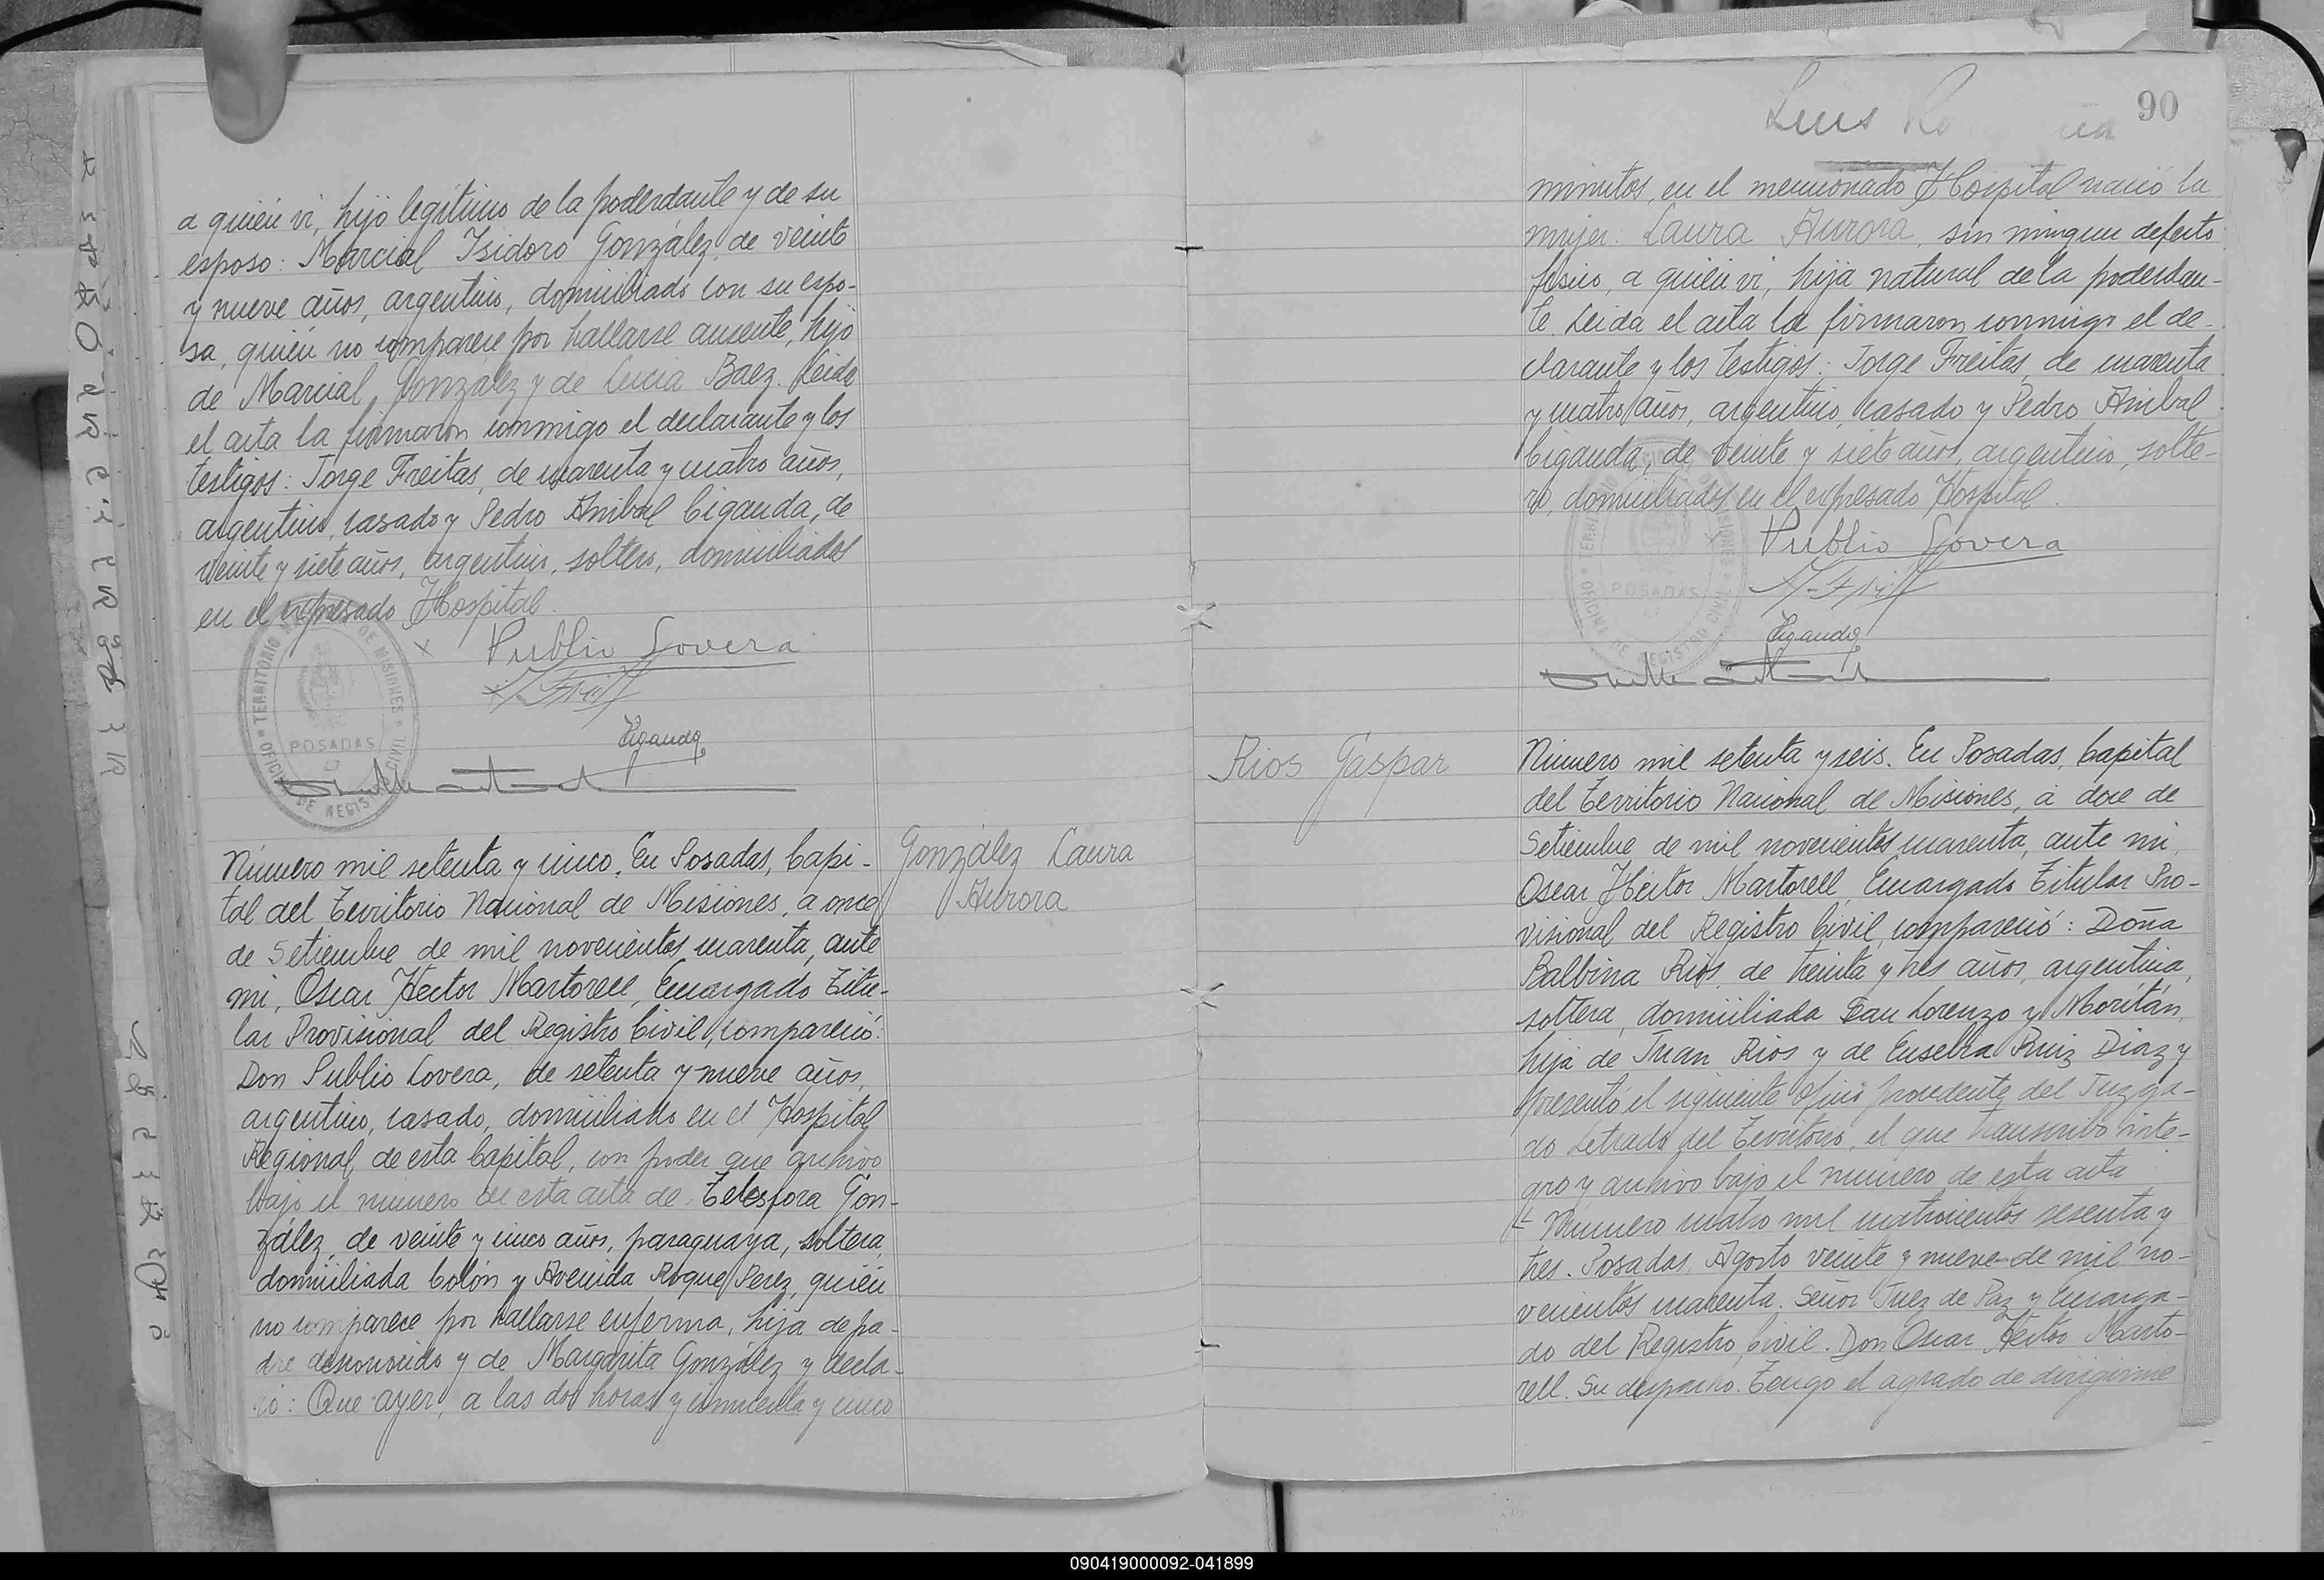 a quién vi, hijo legítimo de la poderdante y de su
esposo: Marcial Isidoro González, de veinte
y nueve años, argentino, domiciliado con su espo-
sa, quién no comparece por hallarse ausente, hijo
de Marcial González y de Lucia Baez. Leida
el acta la firmaron conmigo el declarante y los
testigos: Jorge Freitas, de cuarenta y cuatro años,
argentino, casado y Pedro Anibal Ciganda, de
veinte y siete años, argentino, soltero, domiciliados
en el expresado Hospital.
x Publio Lovera
Ciganda
OFICINA DE REGISTRO CIVIL TERRITORIO DE MISIONES
POSADAS
Número mil setenta y cinco. En Posadas, Capi-
tal del Territorio Nacional de Misiones, a once
de Setiembre de mil novecientos cuarenta, ante
mi, Oscar Héctor Martorell, Encargado Titu-
lar Provisional del Registro Civil, compareció:
Don Publio Lovera, de setenta y nueve años,
argentino, casado, domiciliado en el Hospital
Regional de esta Capital, con poder que archivo
bajo el número de esta acta de Telesfora Gon-
zález, de veinte y cinco años, paraguaya, soltera,
domiciliada Colón y Avenida Roque Perez, quién
no comparece por hallarse enferma, hija de pa-
dre desconocido y de Margarita González y decla-
ró: Que ayer, a las dos horas y cincuenta y cinco
González Laura
Aurora
Luis
90
minutos, en el mencionado Hospital nació la
mujer: Laura Aurora, sin ningun defecto
físico, a quién vi, hija natural de la poderdan-
te. Leida el acta la firmaron conmigo el de-
clarante y los testigos: Jorge Freitas, de cuarenta
y cuatro años, argentino, casado y Pedro Anibal
Ciganda, de veinte y siete años, argentino, solte-
ro, domiciliados en el expresado Hospital.
x Publio Lovera
Ciganda
OFICINA DE REGISTRO CIVIL TERRITORIO MISIONES
POSADAS
Rios Gaspar
Número mil setenta y seis. En Posadas, Capital
del Territorio Nacional de Misiones, a doce de
Setiembre de mil novecientos cuarenta, ante mi,
Oscar Héctor Martorell, Encargado Titular Pro-
visional del Registro Civil, compareció: Doña
Balbina Rios, de treinta y tres años, argentina,
soltera, domiciliada San Lorenzo y Moritán,
hija de Juan Rios y de Eusebia Ruiz Diaz y
presentó el siguiente oficio procedente del Juzga-
do Letrado del Territorio, el que transcribo inte-
gro y archivo bajo el número de esta acta
"Número cuatro mil cuatrocientos sesenta y
tres. Posadas, Agosto veinte y nueve de mil no-
vecientos cuarenta. Señor Juez de Paz y Encarga-
do del Registro Civil. Don Oscar Héctor Marto-
rell. Su despacho. Tengo el agrado de dirigirme
090419000092-041899